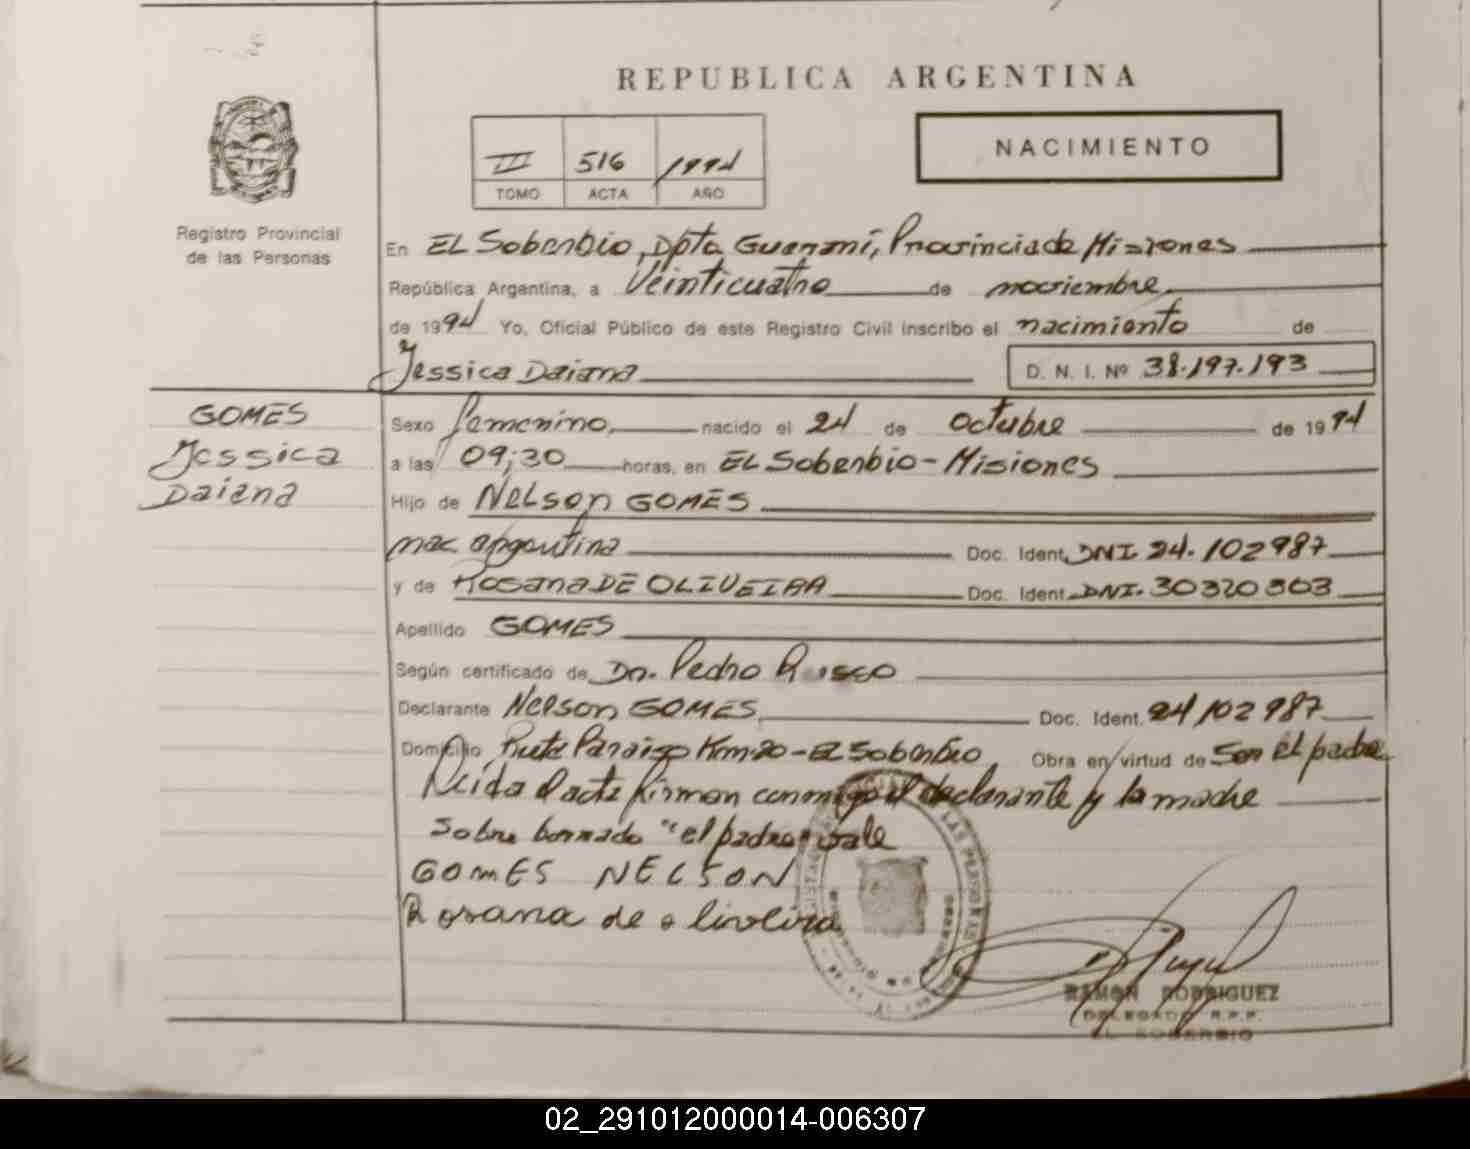 REPUBLICA ARGENTINA
NACIMIENTO
III 516 1994
TOMO ACTA AÑO
Registro Provincial
de las Personas
En EL Soberbio, Dpto Guaraní, Provincia de Misiones
República Argentina, a Veinticuatro de noviembre
de 1994 Yo, Oficial Público de este Registro Civil inscribo el nacimiento de
Jessica Daiana D. N. I. Nº 38.197.193
GOMES
Jessica
Daiana
Sexo femenino, nacido el 24 de Octubre de 1994
a las 09;30 horas, en EL Soberbio - Misiones
Hijo de Nelson GOMES
nac argentina Doc. Ident. DNI 24.102987
y de Rosana DE OLIVEIRA Doc. Ident. DNI. 30320303
Apellido GOMES
Según certificado de Dn. Pedro
Declarante Nelson GOMES Doc. Ident. 24102987
Domicilio Ruta Paraiso Km.20 - EL Soberbio, Obra en virtud de Ser el padre
Leida el acta firman conmigo el declarante y la madre
Sobre borrado "el padre" vale
GOMES NELSON
Rosana de oliveira
RAMON RODRIGUEZ
DELEGADO R.P.P.
EL SOBERBIO
02_291012000014-006307